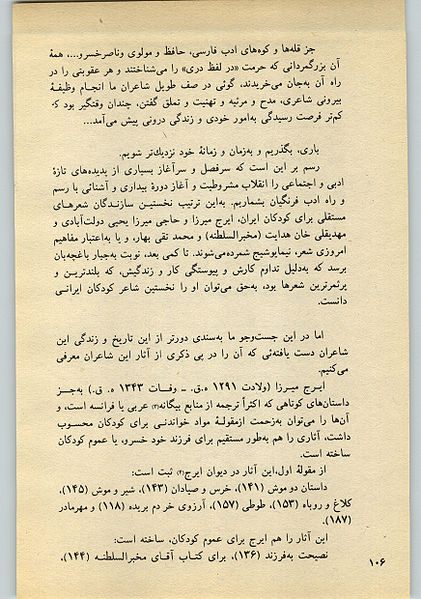 جز قله‌ها و کوه‌های ادب فارسی، حافظ و مولوی وناصرخسرو...، همهٔ
آن بزرگمردانی که حرمت «در لفظ دری» را می‌شناختند و هر عقوبتی را در
راه آن به‌جان می‌خریدند، گوئی در صف طویل شاعران ما انجام وظیفهٔ
بیرونی شاعری، مدح و مرثیه و تهنیت و تملق گفتن، چندان وقتگیر بود که
کم‌تر فرصت رسیدگی به‌امور خودی و زندگی درونی پیش می‌آمد...
باری، بگذریم و به‌زمان و زمانهٔ خود نزدیک‌تر شویم.
رسم بر این است که سرفصل و سرآغاز بسیاری از پدیده‌های تازهٔ
ادبی و اجتماعی را انقلاب مشروطیت و آغاز دورهٔ بیداری و آشنائی با رسم
و راه ادب فرنگیان بشماریم. به‌این ترتیب نخستیـن سازنـدگان شعرهـای
مستقلی برای کودکان ایران، ایرج میرزا و حاجی میرزا یحیی دولت‌آبادی و
مهدیقلی خان هدایت (مخبرالسلطنه) و محمد تقی بهار، و یا به‌اعتبار مفاهیم
امروزی شعر، نیمایوشیج شمرده‌می‌شوند. تا کمی بعد، نوبت به‌جبار باغچه‌بان
برسد که به‌دلیل تداوم کارش و پیوستگی کار و زندگیش، که بلندتریـن و
پرثمرترین شعرها بود، به‌حق می‌توان او را نخستین شاعر کودکان ایرانـی
دانست.
اما در این جست‌وجو ما به‌سندی دورتر از این تاریخ و زندگی این
شاعران دست یافته‌ئی که آن را در پی ذکری از آثار این شاعران معرفی
می‌کنیم.
ایـرج میـرزا (ولادت ۱۲۹۱ ه.ق. ـ وفـات ۱۳۴۳ ه. ق.) به‌جـز
داستان‌های کوتاهی که اکثراً ترجمه از منابع بیگانه عربی یا فرانسه است، و
آن‌ها را می‌توان به‌زحمت ازمقولهٔ مواد خواندنـی برای کودکان محسـوب
داشت، آثاری را هم به‌طور مستقیم برای فرزند خود خسرو، یا عموم کودکان
ساخته است.
از مقولهٔ اول، این آثار در دیوان ایرج ثبت است:
داستان دو موش (۱۴۱)، خرس و صیادان (۱۴۳)، شیر و موش (۱۴۵)،
کلاغ و روباه (۱۵۳)، طوطی (۱۵۷)، آرزوی خر دم بریده (۱۱۸) و مهرمادر
(۱۸۷).
این آثار را هم ایرج برای عموم کودکان، ساخته است:
نصیحت به‌فرزند (۱۳۶)، برای کتاب آقای مخبرالسلطنـه (۱۴۴)،
۱۰۶